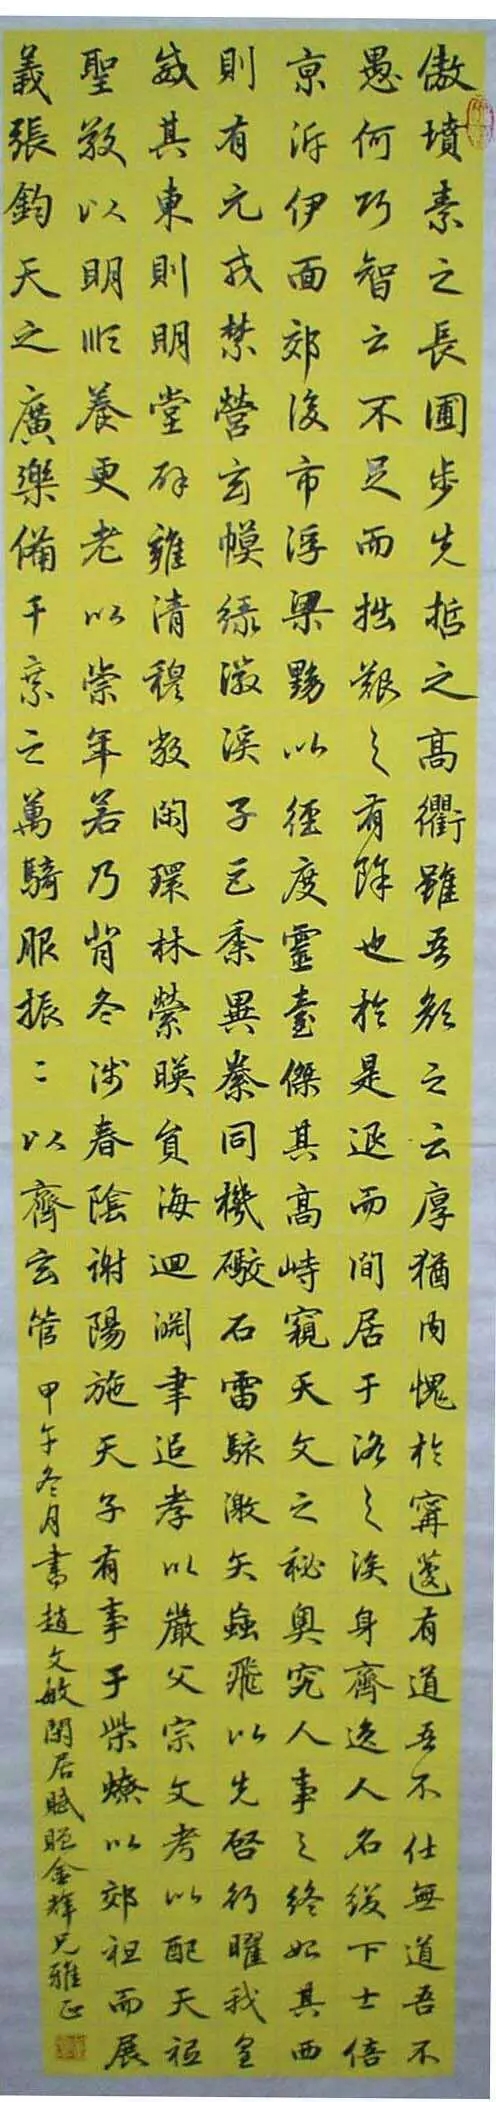 傲墳素之長圃步先哲之高衢雖吾顏之云厚猶内愧於寗蘧有道吾不仕無道吾不
愚何巧智之不足而拙艱之有餘也於是退而間居于洛之涘身齊逸人名綴下士倍
京泝伊面郊後市浮梁黝以徑度靈臺傑其高峙窺天文之秘奧究人事之終始其西
則有元戎禁營玄幙綠徽溪子巨黍異絭同機礮石雷駭激矢蝱飛以先啓行曜我皇
威其東則明堂辟雍清穆敞閑環林縈暎負海迴淵聿追孝以嚴父宗文考以配天祗
聖敬以明順養更老以崇年若乃背冬涉春陰謝陽施天子有事于柴燎以郊祖而展
義張鈞天之廣樂備千乘之萬騎服振二以齊玄管 甲午冬月書趙文敏閑居賦贈金輝兄雅正